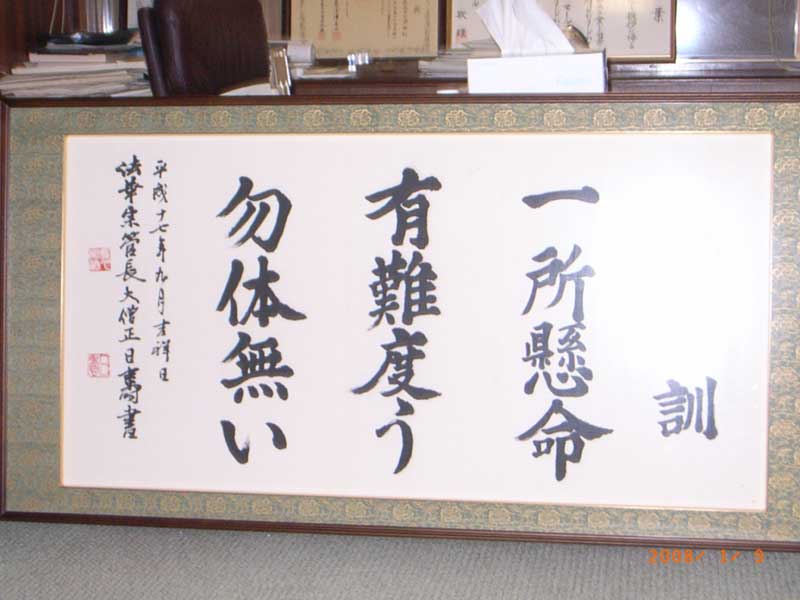 訓
一所懸命
有難度う
勿体無い
平成十七年九月吉祥日
法華宗管長大僧正日書
2008/ 1/ 9